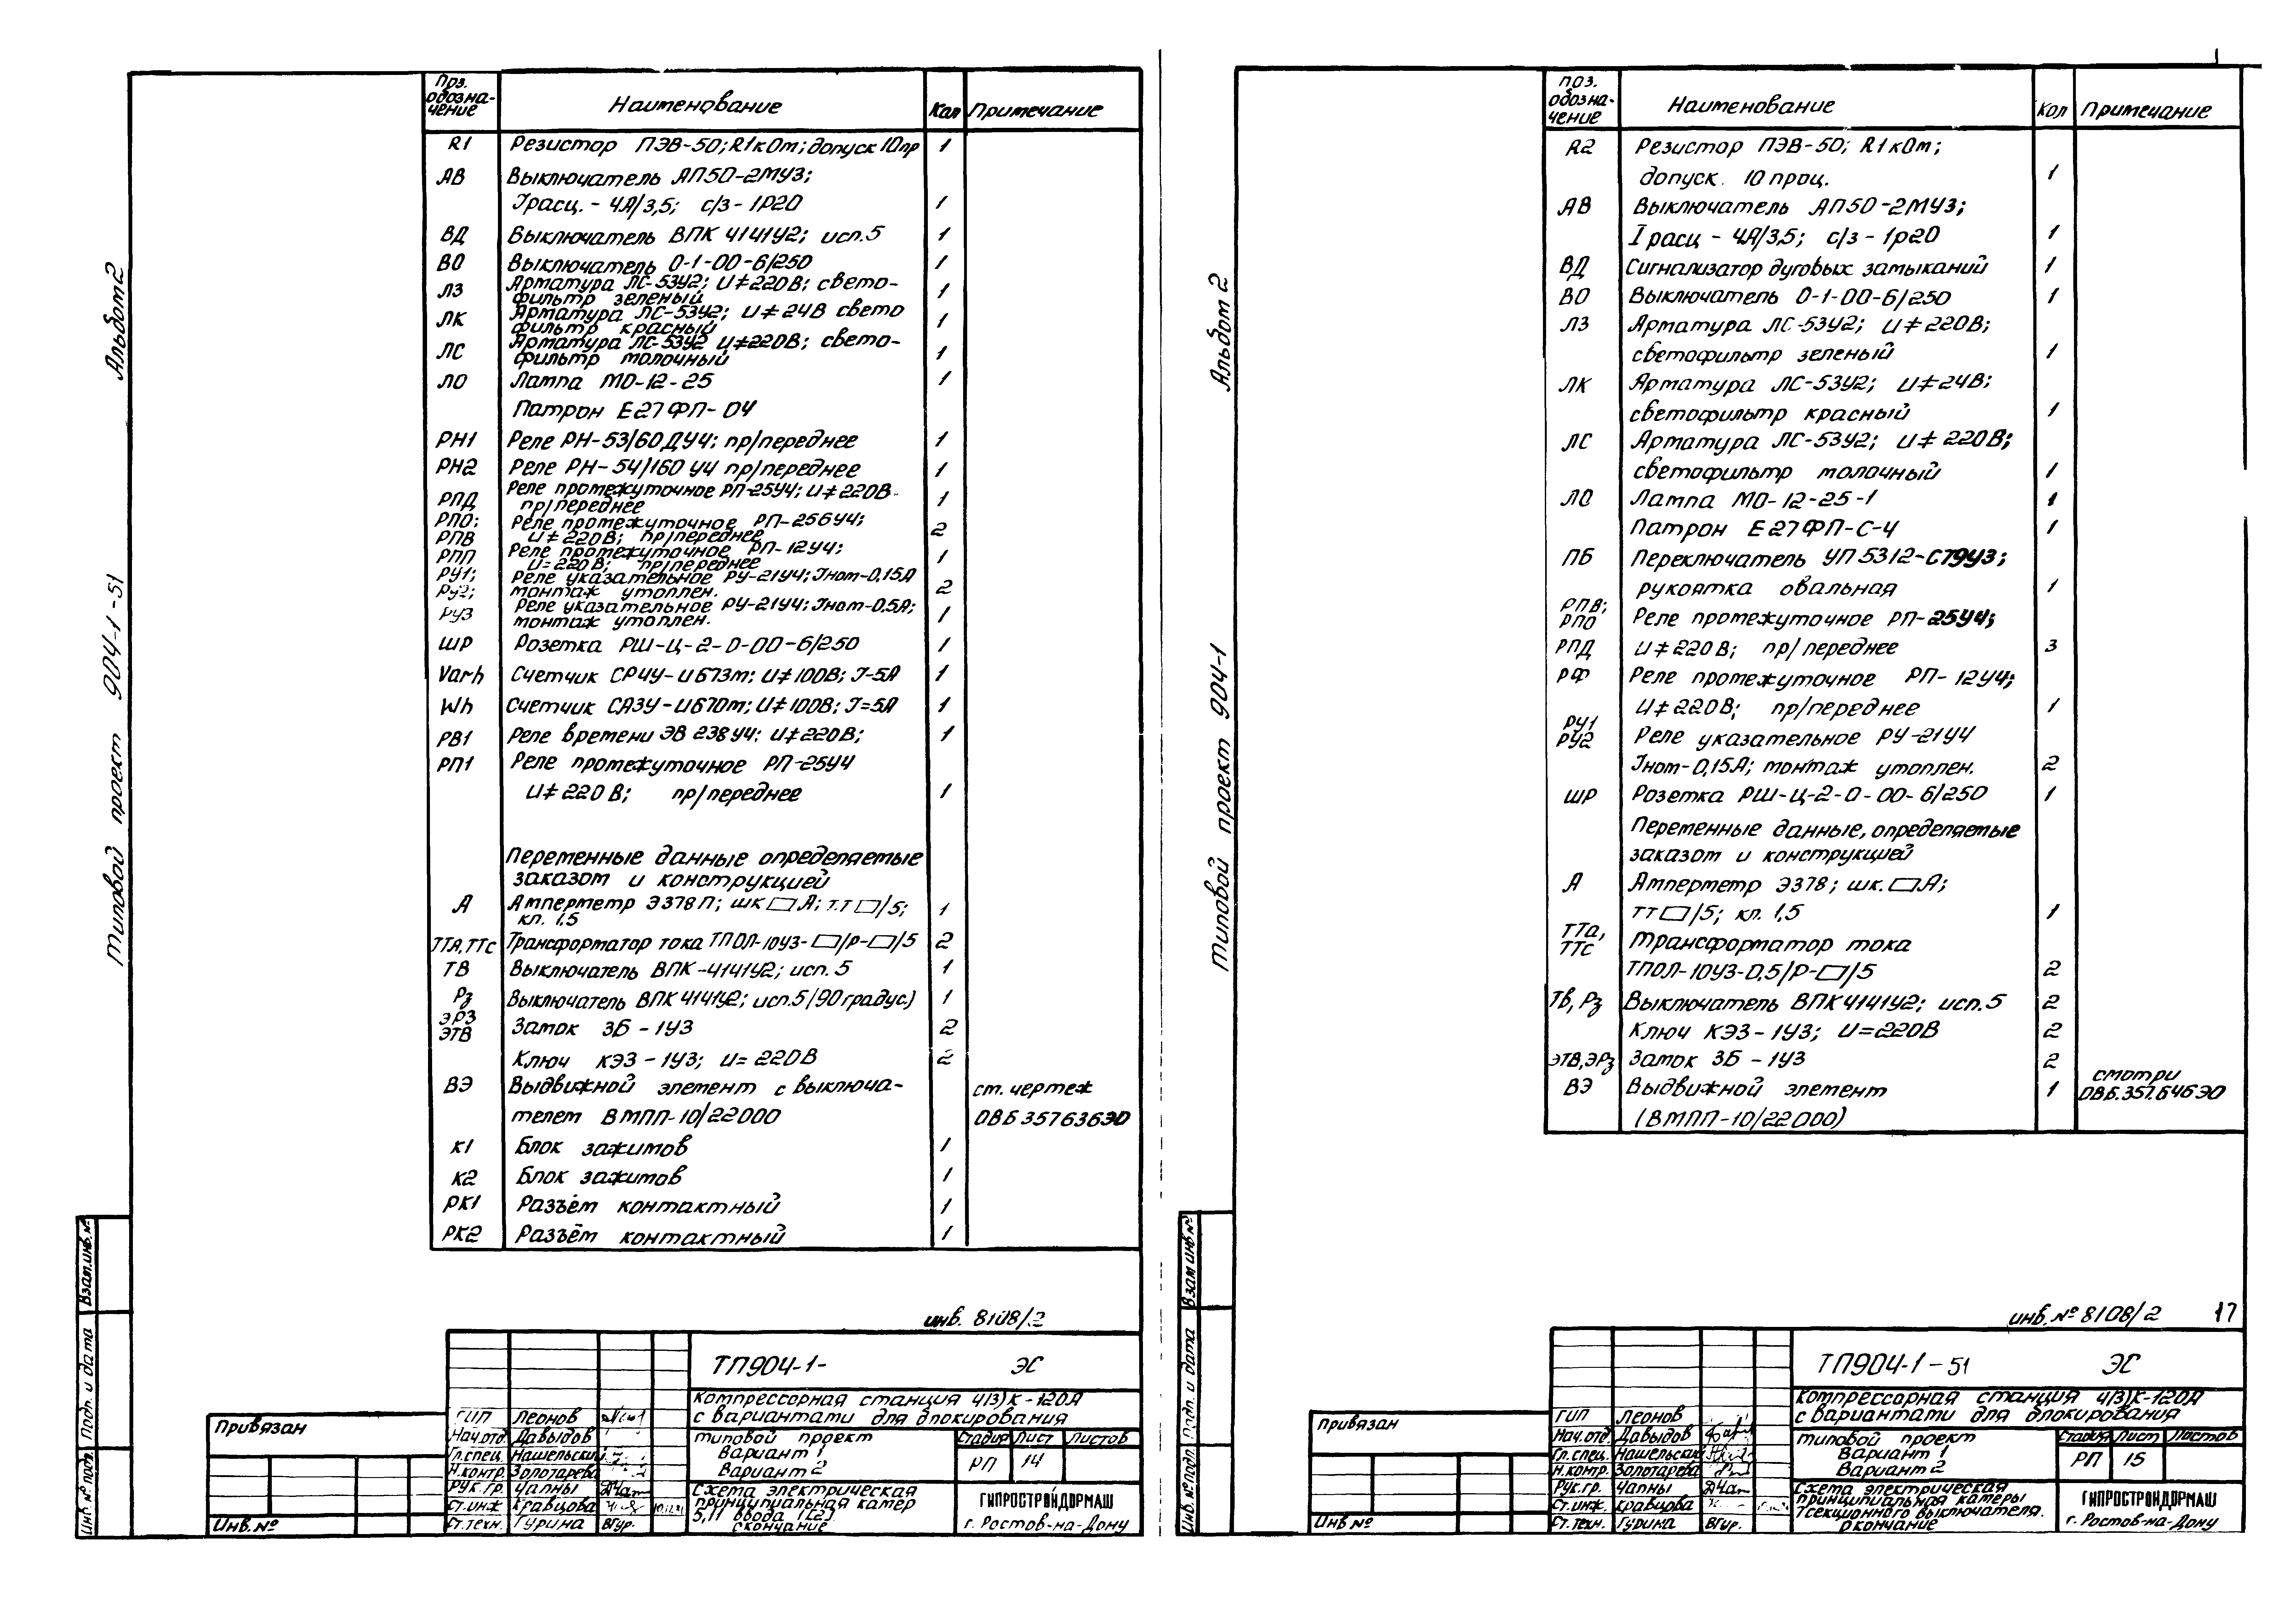 Альбом 2
Типовой проект 904-1-51
Поз. обозна-чение Наименование Кол Примечание
R1 Резистор ПЭВ-50; R1кОм; допуск 10пр 1
АВ Выключатель АП50-2МУ3;
Iрасц.-4А/3,5; с/з-1Р20 1
ВД Выключатель ВПК 4141У2; исп.5 1
ВО Выключатель 0-1-00-6/250 1
ЛЗ Арматура ЛС-53У2; U≠220В; свето-
фильтр зеленый 1
ЛК Арматура ЛС-53У2; U≠24В свето
фильтр красный 1
ЛС Арматура ЛС-53У2 U≠220В; свето-
фильтр молочный 1
ЛО Лампа МО-12-25 1
Патрон Е27ФП-04
РН1 Реле РН-53/60ДУ4; пр/переднее 1
РН2 Реле РН-54/160 У4 пр/переднее 1
РПД Реле промежуточное РП-25У4; U≠220В
пр/переднее 1
РПО; Реле промежуточное РП-256У4;
РПВ U≠220В; пр/переднее 2
РПП Реле промежуточное РП-12У4;
U=220В; пр/переднее 1
РУ1; Реле указательное РУ-21У4; Iном-0,15А
РУ2; монтаж утоплен. 2
РУ3 Реле указательное РУ-21У4; Iном-0,5А;
монтаж утоплен. 1
ШР Розетка РШ-Ц-2-0-00-6/250 1
Varh Счетчик СР4У-U673м; U≠100В; I-5А 1
Wh Счетчик СА3У-U670м; U≠100В; I=5А 1
РВ1 Реле времени ЭВ 238У4; U≠220В; 1
РП1 Реле промежуточное РП-25У4
U≠220В; пр/переднее 1
Переменные данные определяемые
заказом и конструкцией
А Амперметр Э378П; шк▭А; т.т▭/5;
кл. 1,5 1
ТТА,ТТс Трансформатор тока ТПОЛ-10У3-▭/Р-▭/5 2
ТВ Выключатель ВПК-4141У2; исп. 5 1
Рз Выключатель ВПК4141У2; исп.5/90градус) 1
ЭРЗ
ЭТВ Замок ЗБ-1У3 2
Ключ КЭЗ-1У3; U=220В 2
ВЭ Выдвижной элемент с выключа- см. чертеж
телем ВМПП-10/22000 ОВБ357636ЭО
К1 Блок зажимов 1
К2 Блок зажимов 1
РК1 Разъём контактный 1
РК2 Разъём контактный 1
инв. 8108/2
ТП904-1- ЭС
Компрессорная станция 4(3)К-120А
с вариантами для блокирования
ГИП Леонов
Нач.отд Давыдов
Гл.спец. Нашельский
Н.контр. Золотарева
Рук.гр. Чапны
Ст.инж Кравцова
Ст.техн. Гурина ВГур.
типовой проект
Вариант 1
Вариант 2
Стадия Лист Листов
РП 14
Схема электрическая
принципиальная камер
5,11 ввода 1(2).
окончание
ГИПРОСТРОЙДОРМАШ
г. Ростов-на-Дону
Привязан
Инв.№
Взам.инв.№
Подп. и дата
Инв.№ подп.
Альбом 2
Типовой проект 904-1
Поз. обозна-чение Наименование Кол Примечание
R2 Резистор ПЭВ-50; R1кОм;
допуск. 10 проц. 1
АВ Выключатель АП50-2МУ3;
Iрасц-4А/3,5; с/з-1р20 1
ВД Сигнализатор дуговых замыканий 1
ВО Выключатель 0-1-00-6/250 1
ЛЗ Арматура ЛС-53У2; U≠220В;
светофильтр зеленый 1
ЛК Арматура ЛС-53У2; U≠24В;
светофильтр красный 1
ЛС Арматура ЛС-53У2; U≠220В;
светофильтр молочный 1
ЛО Лампа МО-12-25-1 1
Патрон Е27ФП-С-4 1
ПБ Переключатель УП5312-С79У3;
рукоятка овальная 1
РПВ;
РПО Реле промежуточное РП-25У4;
РПД U≠220В; пр/переднее 3
РФ Реле промежуточное РП-12У4;
U≠220В; пр/переднее 1
РУ1
РУ2 Реле указательное РУ-21У4
Iном-0,15А; монтаж утоплен. 2
ШР Розетка РШ-Ц-2-0-00-6/250 1
Переменные данные, определяемые
заказом и конструкцией
А Амперметр Э378; шк.▭А;
тт▭/5; кл. 1,5 1
ТТа,
ТТс Трансформатор тока
ТПОЛ-10У3-0,5/Р-▭/5 2
Тв, Рз Выключатель ВПК4141У2; исп.5 2
Ключ КЭЗ-1У3; U=220В 2
ЭТВ,ЭРз Замок ЗБ-1У3 2
ВЭ Выдвижной элемент 1 смотри ОВБ.357.646ЭО
(ВМПП-10/22000)
инв.№8108/2 17
ТП904-1-51 ЭС
Компрессорная станция 4(3)К-120А
с вариантами для блокирования
ГИП Леонов
Нач.отд. Давыдов
Гл.спец. Нашельский
Н.контр. Золотарева
Рук.гр. Чапны
Ст.инж. Кравцова
Ст.техн. Гурина ВГур.
типовой проект
Вариант 1
Вариант 2
Стадия Лист Листов
РП 15
Схема электрическая
принципиальная камеры
7секционного выключателя.
окончание
ГИПРОСТРОЙДОРМАШ
г. Ростов-на-Дону
Привязан
Инв №
Взам инв.№
Подп. и дата
Инв.№ подп.